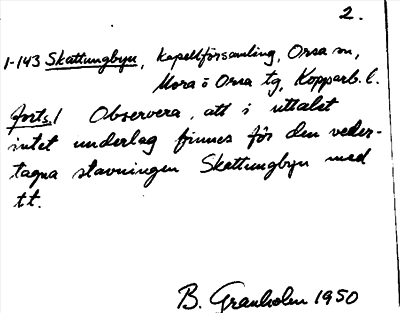 2.
1-143 Skattungbyn, kapellförsamling, Orsa sn,
Mora o Orsa tg, Kopparb. l.
forts./ Observera, att i uttalet
intet underlag finnes för den veder-
tagna stavningen Skattungbyn med
tt.
B. Granholm 1950